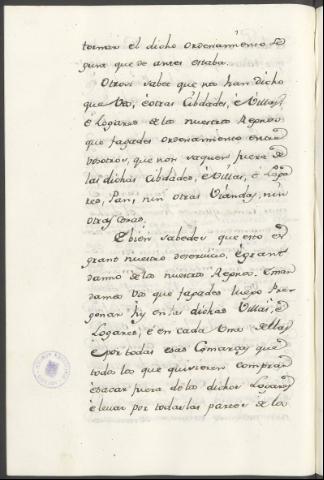 tornar el dicho ordenamiento se
gun que de antes estaba.
Otrosi sabet que nos han dicho
que Vos, è otras Cibdades, è Villas,
è Logares de los nuestros Regnos
que fagades ordenamiento entre
vosotros, que non saquen fuera de
las dichas Cibdades, è Villas, è Loga
res, Pan, nin otras Viandas, nin
otras cosas.
E bien sabedes que esto es
grant nuestro deservicio, è grant
danno de los nuestros Regnos. E man
damos Vos que fagades luego Pre
gonar hy en las dichas Villas, è
Logares, è en cada Uno dellas
è por todas esas Comarcas que
todos los que quisieren comprar
è sacar fuera de los dichos Logares
è levar por todas las partes de los